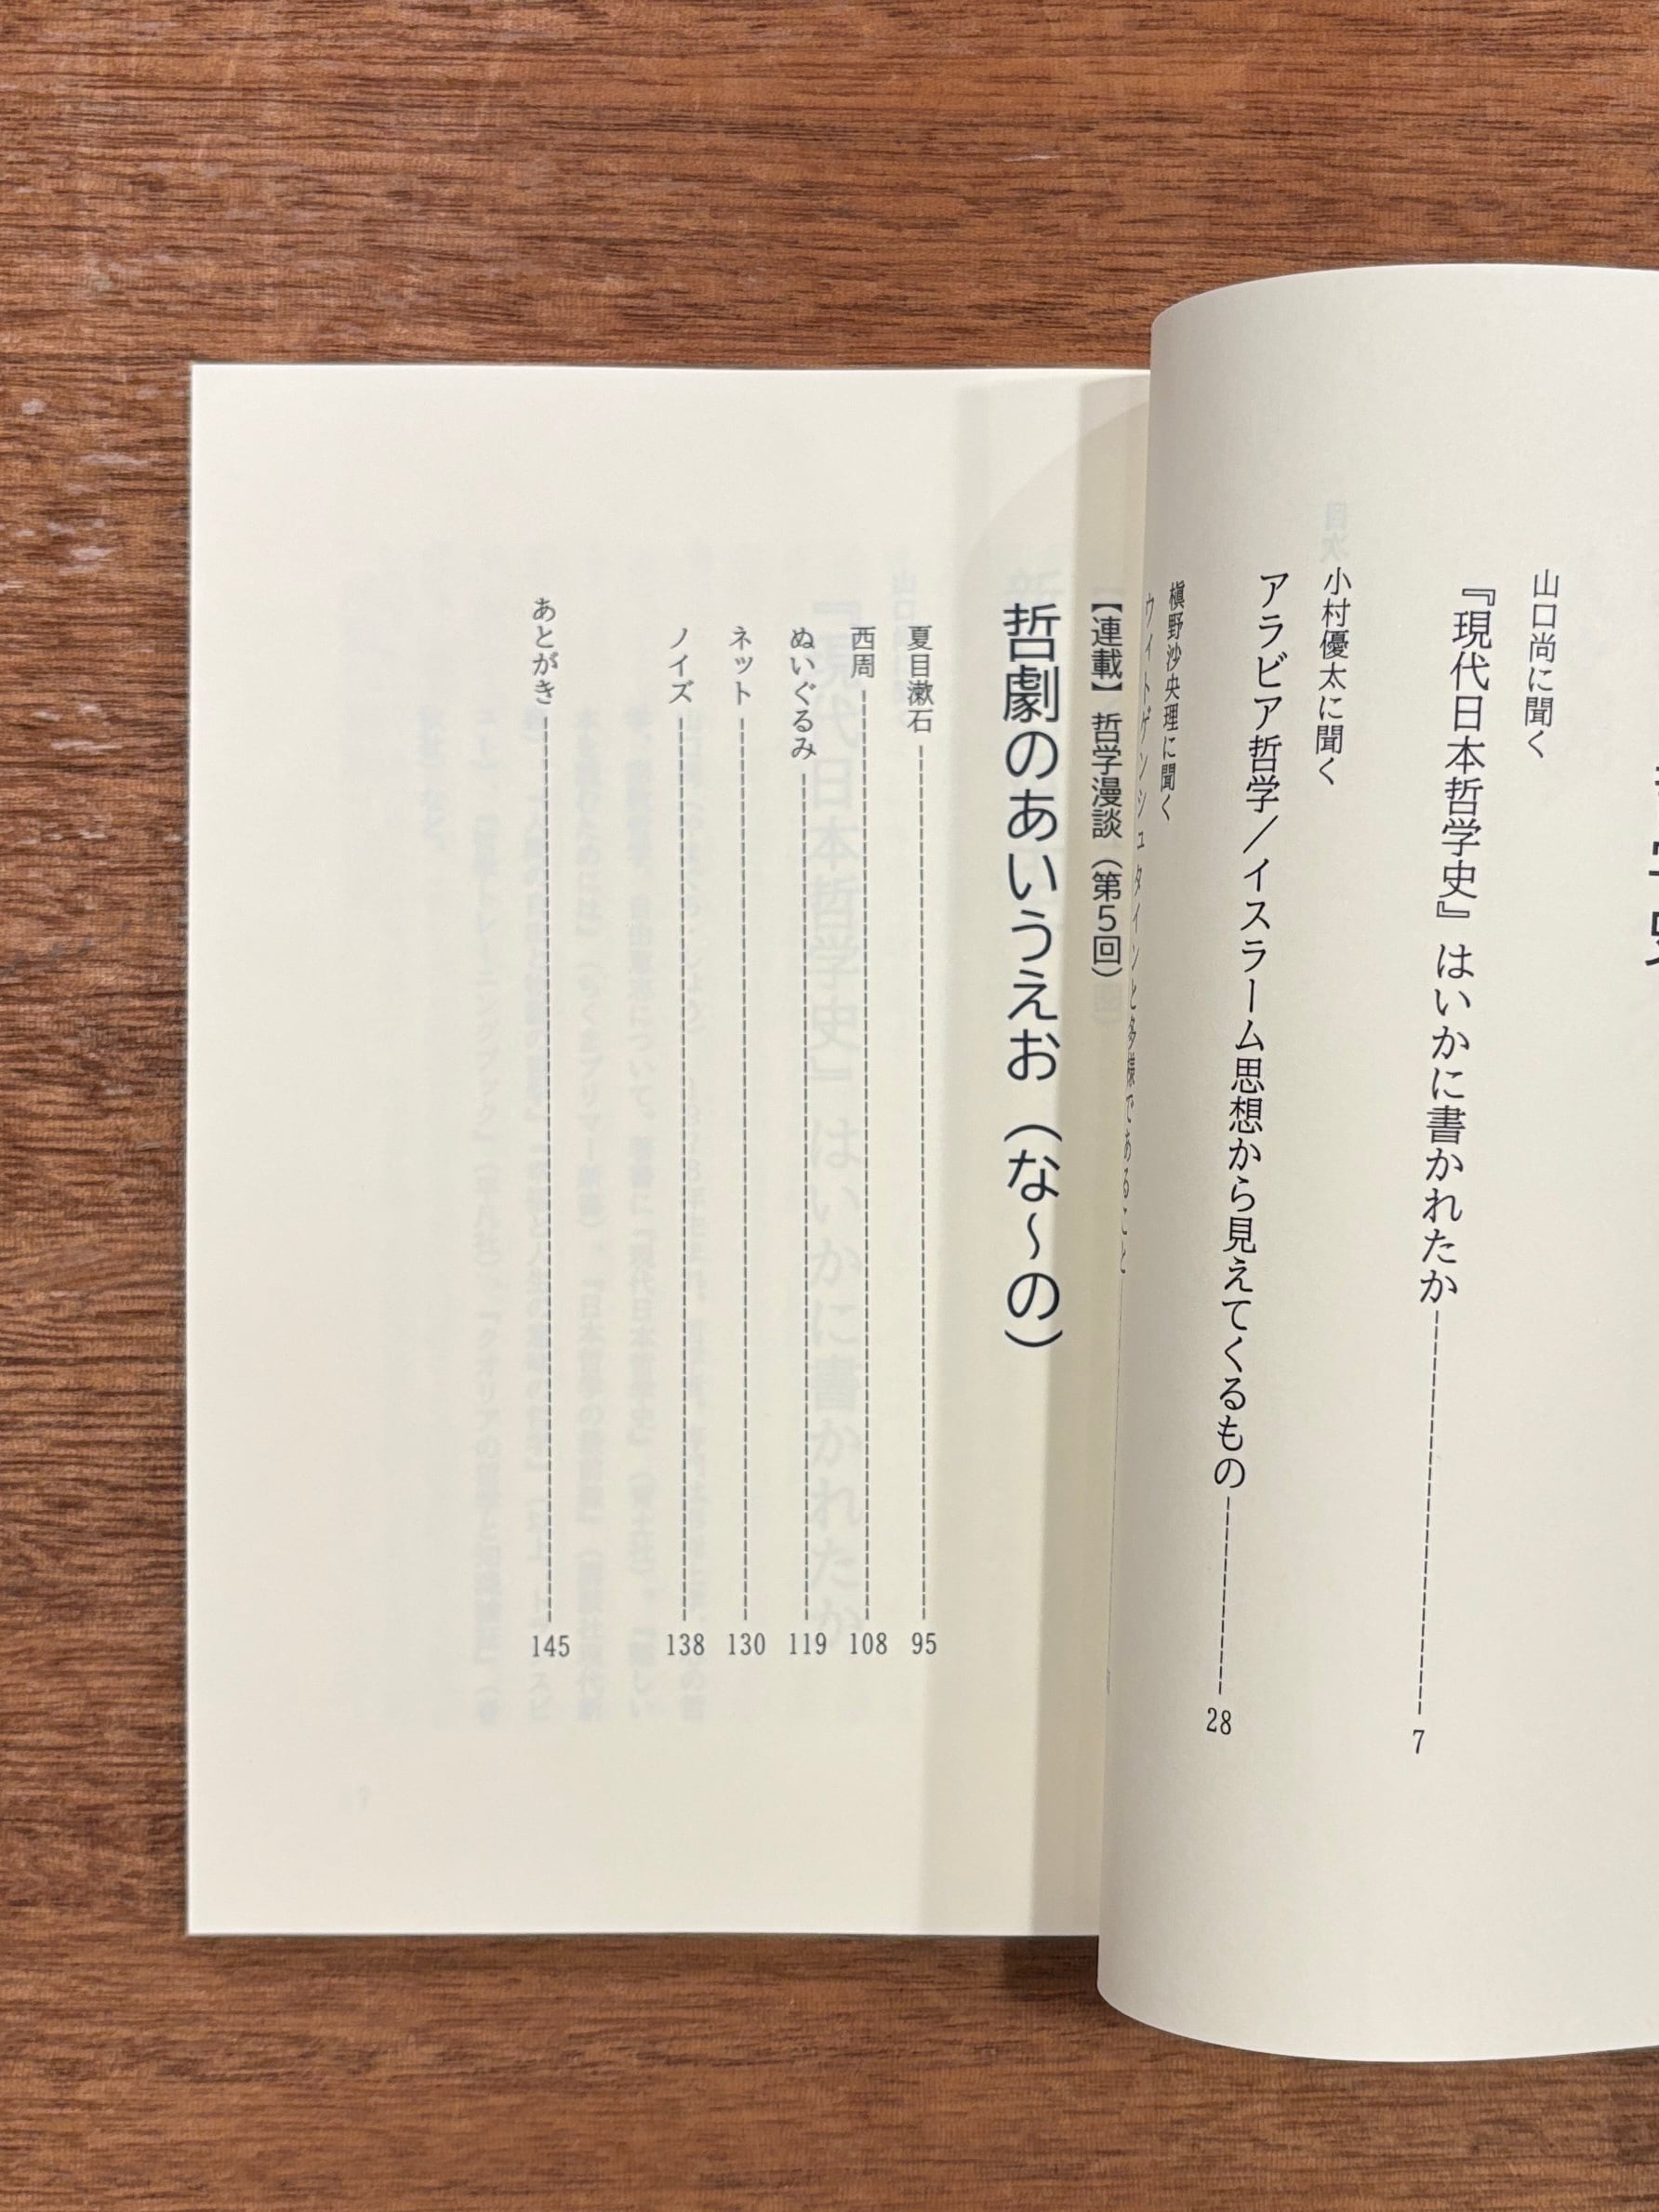 山口尚に聞く
『現代日本哲学史』はいかに書かれたか 7
小村優太に聞く
アラビア哲学／イスラーム思想から見えてくるもの 28
槇野沙央理に聞く
ウィトゲンシュタインと多様であること
【連載】哲学漫談（第5回）
哲劇のあいうえお（な～の）
夏目漱石 95
西周 108
ぬいぐるみ 119
ネット 130
ノイズ 138
あとがき 145